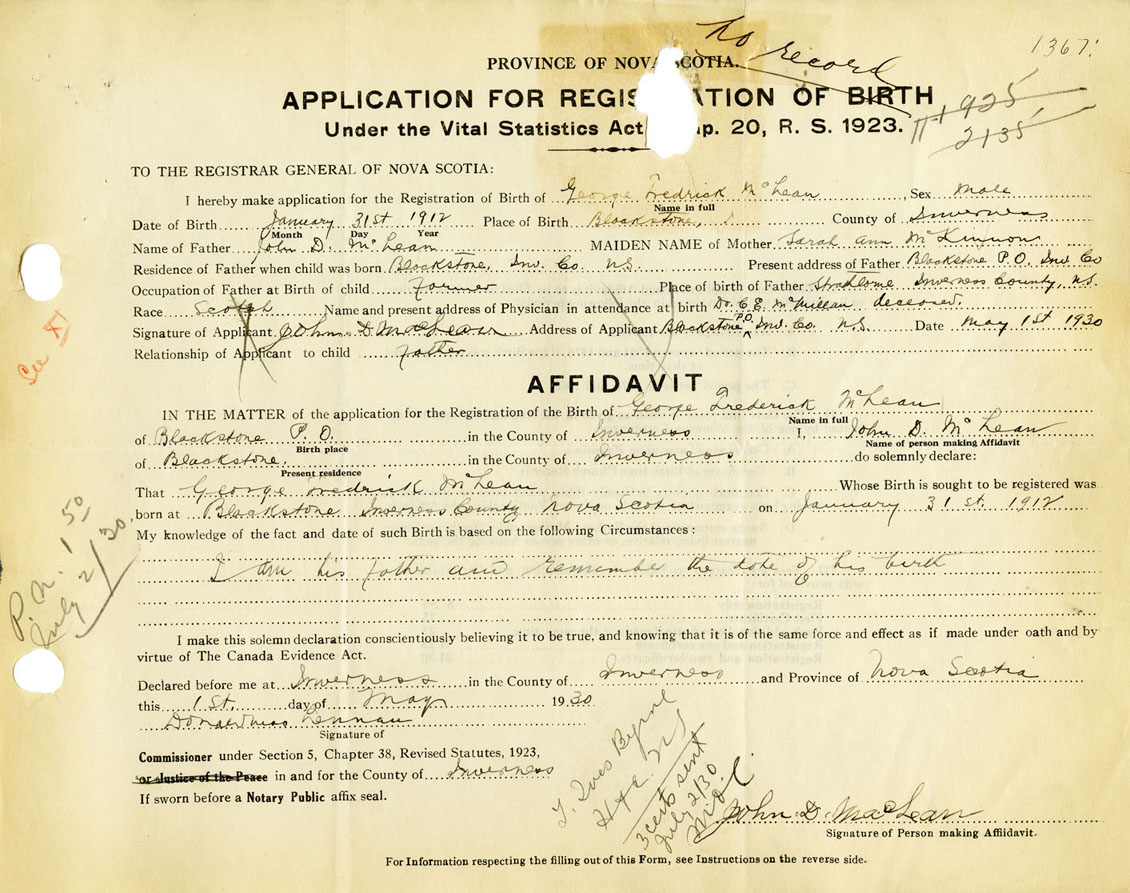 No record
1367.
PROVINCE OF NOVA SCOTIA.
APPLICATION FOR REGIS ATION OF BIRTH
Under the Vital Statistics Act p. 20, R. S. 1923.
1925
2135
TO THE REGISTRAR GENERAL OF NOVA SCOTIA:
I hereby make application for the Registration of Birth of George Fredrick McLean, Sex Male
Name in full
Date of Birth January 31st 1912 Place of Birth Blackstone, County of Inverness
Month Day Year
Name of Father John D. McLean MAIDEN NAME of Mother Sarah Ann McKinnon
Residence of Father when child was born Blackstone, Inv. Co. N.S. Present address of Father Blackstone P.O. Inv Co
Occupation of Father at Birth of child Farmer Place of birth of Father Strathlorne Inverness County, N.S.
Race Scotch Name and present address of Physician in attendance at birth Dr. C E. McMillan deceased.
Signature of Applicant John D MacLean Address of Applicant Blackstone P.O. Inv. Co. N.S. Date May 1st 1930
Relationship of Applicant to child father
AFFIDAVIT
IN THE MATTER of the application for the Registration of the Birth of George Frederick McLean
Name in full
of Blackstone P.O. in the County of Inverness I, John D. McLean
Birth place Name of person making Affidavit
of Blackstone, in the County of Inverness do solemnly declare:
Present residence
That George Fredrick McLean Whose Birth is sought to be registered was
born at Blackstone Inverness County Nova Scotia on January 31st. 1912
My knowledge of the fact and date of such Birth is based on the following Circumstances:
I am his father and remember the date of his birth
I make this solemn declaration conscientiously believing it to be true, and knowing that it is of the same force and effect as if made under oath and by
virtue of The Canada Evidence Act.
Declared before me at Inverness in the County of Inverness and Province of Nova Scotia
this 1st. day of May 1930
Signature of
Commissioner under Section 5, Chapter 38, Revised Statutes, 1923,
or Justice of the Peace in and for the County of Inverness
If sworn before a Notary Public affix seal.
John D. MacLean
Signature of Person making Affidavit.
For Information respecting the filling out of this Form, see Instructions on the reverse side.
See
P.N. 1 50
July 2/30.
3 certs sent
July 2/30